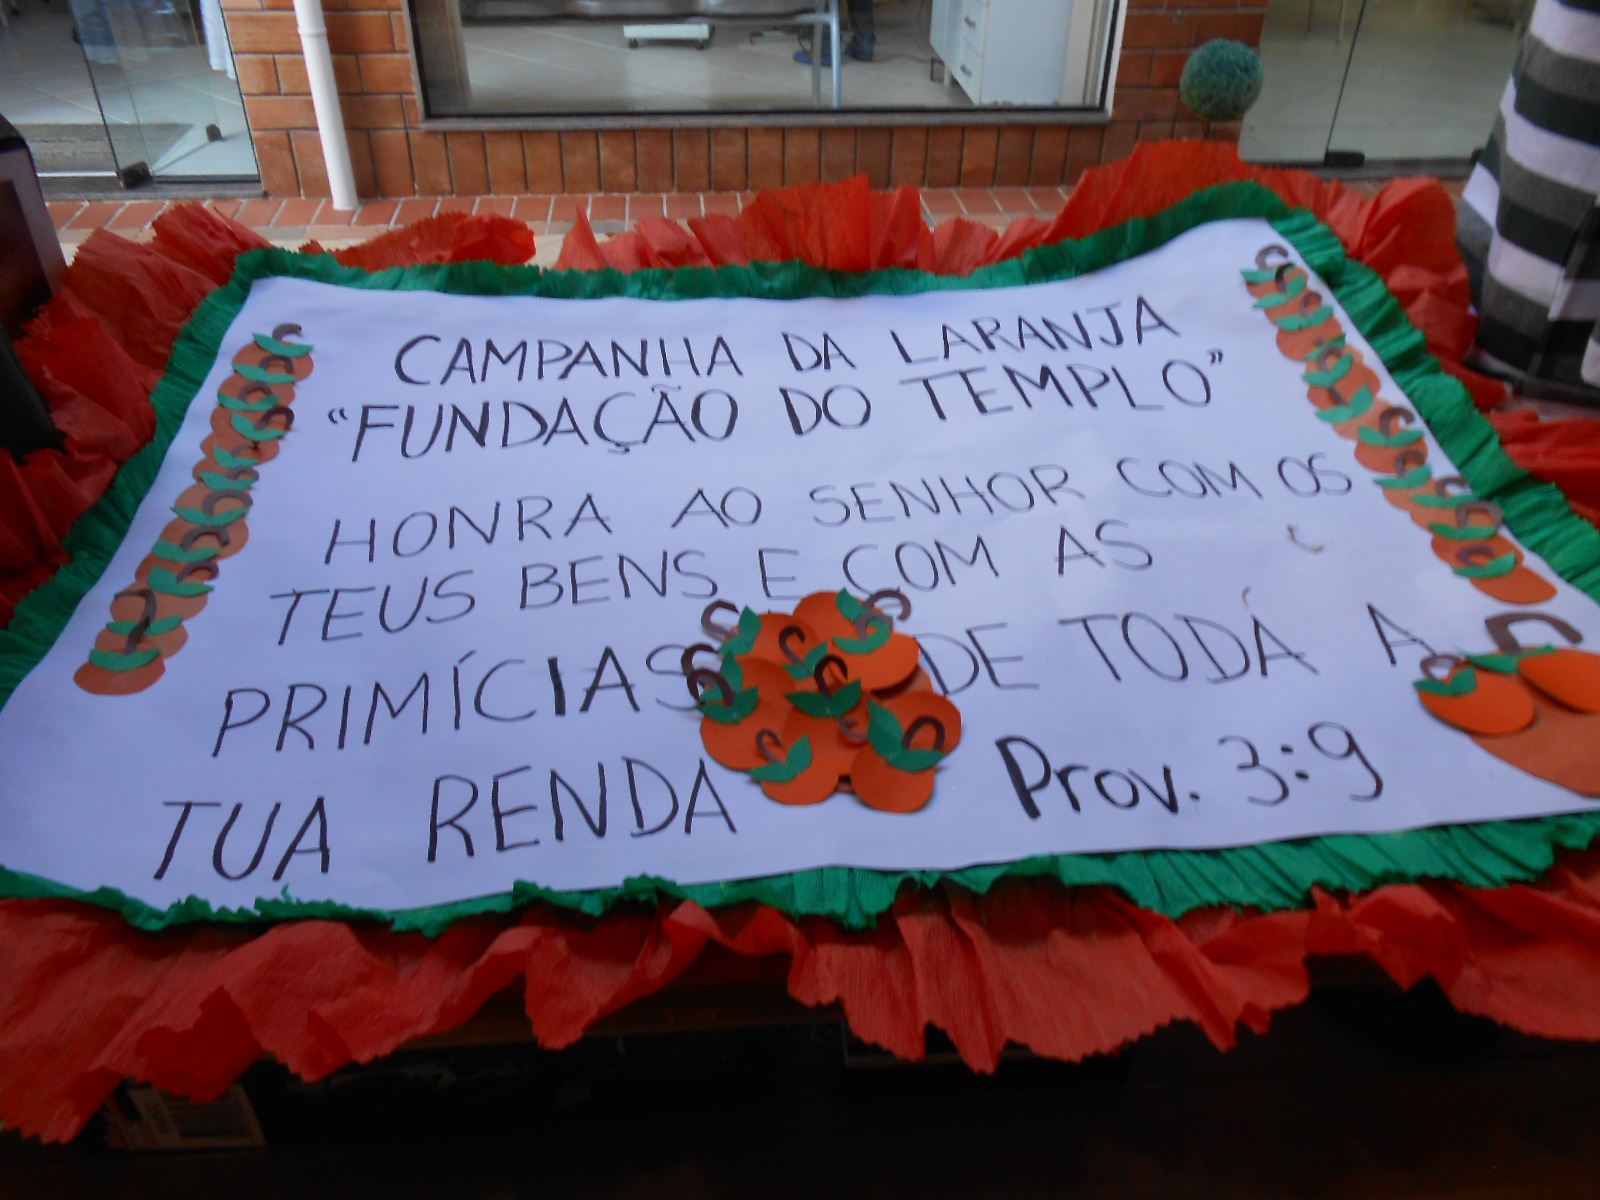 CAMPANHA DA LARANJA
"FUNDAÇÃO DO TEMPLO"
HONRA AO SENHOR COM OS
TEUS BENS E COM AS
PRIMÍCIAS DE TODA A
TUA RENDA Prov. 3:9